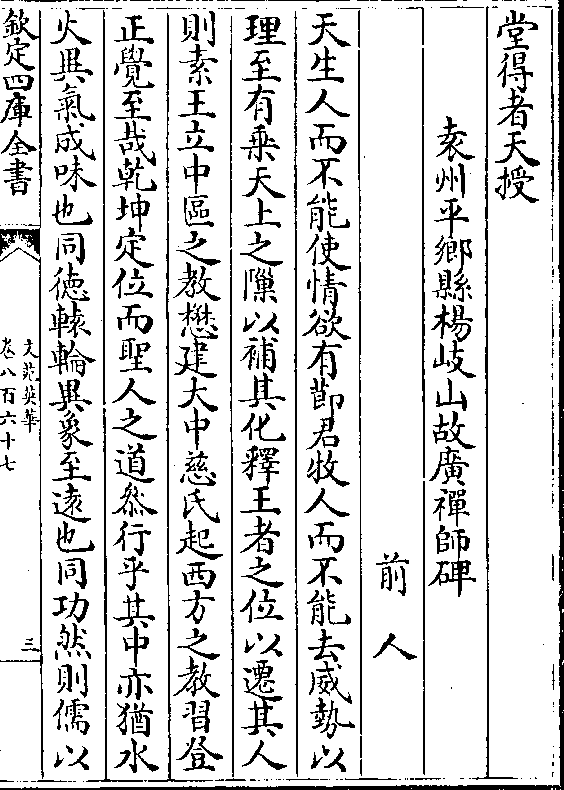 堂得者天授
袁州平鄉縣楊岐山故廣禪師碑
前人
天生人而不能使情欲有節君牧人而不能去威勢以
理至有乗天上之隟以補其化釋王者之位以遷其人
則素王立中區之教懋建大中慈氏起西方之教習登
正覺至哉乾坤定位而聖人之道叅行乎其中亦猶水
火異氣成味也同徳轅輪異象至逺也同功然則儒以
欽定四庫全書
文苑英華
卷八百六十七
三